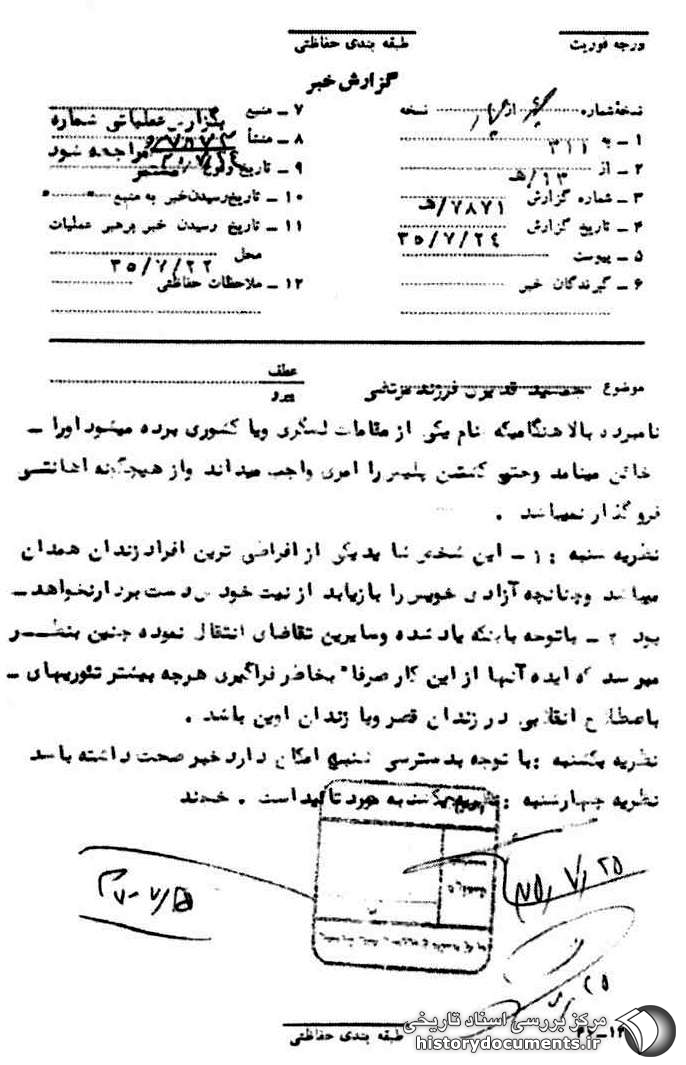 درجه فوریت
طبقه بندی حفاظتی
گزارش خبر
نسخهٔ شماره از نسخه
۱ ـ به ۳۱۱
۲ ـ از ۱۳/هـ
۳ ـ شماره گزارش ۷۸۷۱/هـ
۴ ـ تاریخ گزارش ۳۵/۷/۲۴
۵ ـ پیوست
۶ ـ گیرندگان خبر
۷ ـ منبع بگزارش عملیاتی شماره
۸ ـ منشأ
۹ ـ تاریخ وقوع مراجعه شود
۱۰ ـ تاریخ رسیدن خبر به منبع " "
۱۱ ـ تاریخ رسیدن خبر برهبر عملیات
محل ۳۵/۷/۲۲
۱۲ ـ ملاحظات حفاظتی
موضوع فرزند مرتضی
عطف
پیرو
نامبرده بالا هنگامیکه نام یکی از مقامات لشگری ویا کشوری برده میشود اورا ـ
خائن مینامد وحتی کشتن پلیس را امری واجب میداند واز هیچگونه اهانتی
فروگذار نمیباشد .
نظریه سنبه : ۱ـ این شخص شاید یکی از افراطی ترین افراد زندان همدان
میباشد وچنانچه آزادی خویش را بازیابد از نیت خود دست بردار نخواهد ـ
بود ۲ ـ باتوجه باینکه یاد شده وسایرین تقاضای انتقال نموده چنین بنظـــر
میرسد که ایده آنها از این کار صرفا" بخاطر فراگیری هرچه بیشتر تئوریهای ـ
باصطلاح انقلابی در زندان قصر ویا زندان اوین باشد .
نظریه یکشنبه : با توجه بدسترسی شنبه امکان دارد خبر صحت داشته باشد
نظریه چهارشنبه : نظریه یکشنبه مورد تائید است .
۲۵/۷/
۲۵
طبقه بندی حفاظتی
مرکز بررسی اسناد تاریخی
historydocuments.ir